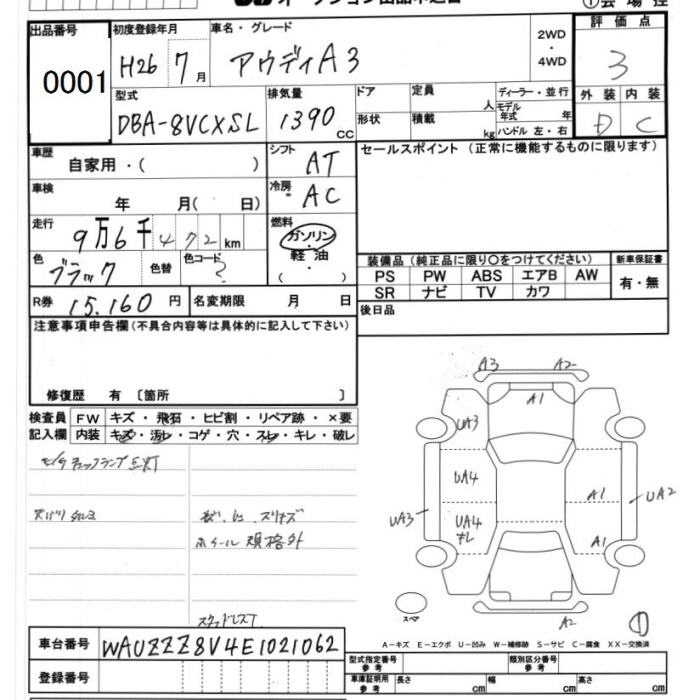 出品番号 初度登録年月 車名・グレード 2WD・4WD 評価点
0001 H26 7月 アウディA3 3
型式 排気量 ドア 定員 人 ディーラー・並行 外装 内装
DBA-8VCXSL 1390cc 形状 積載 kg モデル年式 年 ハンドル 左・右 D C
車歴 自家用・( ) シフト AT セールスポイント(正常に機能するものに限ります)
車検 年 月( 日) 冷房 AC
走行 9万6千472km 燃料 ガソリン・軽油・( )
色 ブラック 色替 色コード ?
装備品(純正品に限り○をつけてください) 新車保証書
PS PW ABS エアB AW 有・無
SR ナビ TV カワ
R券 15,160円 名変期限 月 日 後日品
注意事項申告欄(不具合内容等は具体的に記入して下さい)
修復歴 有 [箇所 ]
検査員 FW キズ・飛石・ヒビ割・リペア跡・×要
記入欄 内装 キズ・汚レ・コゲ・穴・スレ・キレ・破レ
A3 A2
A1
UA3
UA4
UA3 UA4 キレ A1 UA2
A1
A2
スペア
ホイール規格外
スタッドレスT
A-キズ E-エクボ U-凹み W-補修跡 S-サビ C-腐食 XX-交換済
車台番号 WAUZZZ8V4E1021062
登録番号
型式指定番号 参考 類別区分番号 参考
車庫証明用 参考 長さ cm 幅 cm 高さ cm